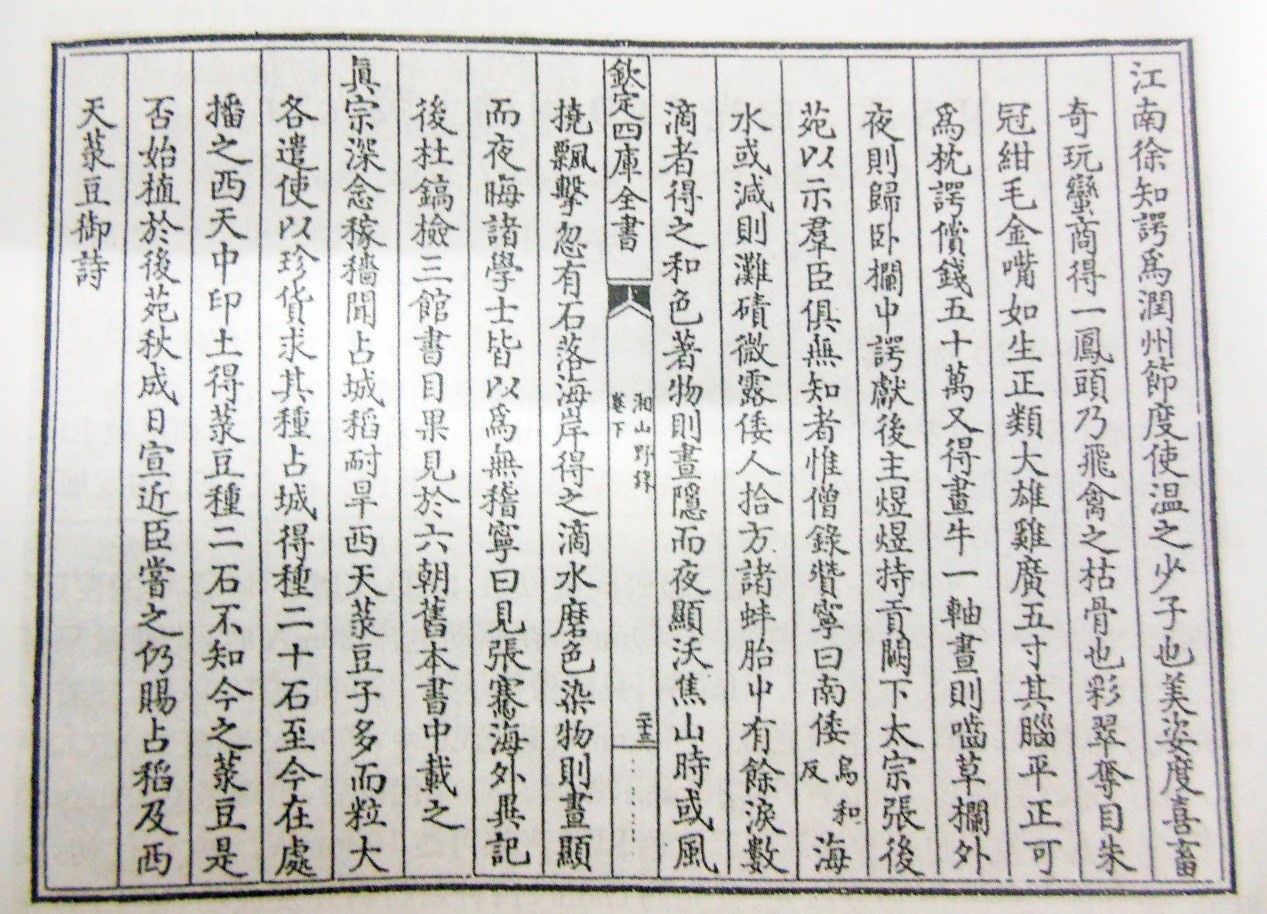 江南徐知諤爲潤州節度使溫之少子也美姿度喜畜
奇玩蠻商得一鳳頭乃飛禽之枯骨也彩翠奪目朱
冠紺毛金嘴如生正類大雄雞廣五寸其腦平正可
爲枕諤償錢五十萬又得畫牛一軸晝則嚙草欄外
夜則歸卧欄中諤獻後主煜煜持貢闕下太宗張後
苑以示羣臣俱無知者惟僧錄贊寧曰南倭烏和反海
水或減則灘磧微露倭人拾方諸蚌胎中有餘淚數
滴者得之和色著物則晝隱而夜顯沃焦山時或風
欽定四庫全書
湘山野録
卷下
二十五
撓飄擊忽有石落海岸得之滴水磨色染物則晝顯
而夜晦諸學士皆以爲無稽寧曰見張騫海外異記
後杜鎬檢三館書目果見於六朝舊本書中載之
眞宗深念稼穡聞占城稻耐旱西天菉豆子多而粒大
各遣使以珍貨求其種占城得種二十石至今在處
播之西天中印土得菉豆種二石不知今之菉豆是
否始植於後苑秋成日宣近臣嘗之仍賜占稻及西
天菉豆御詩